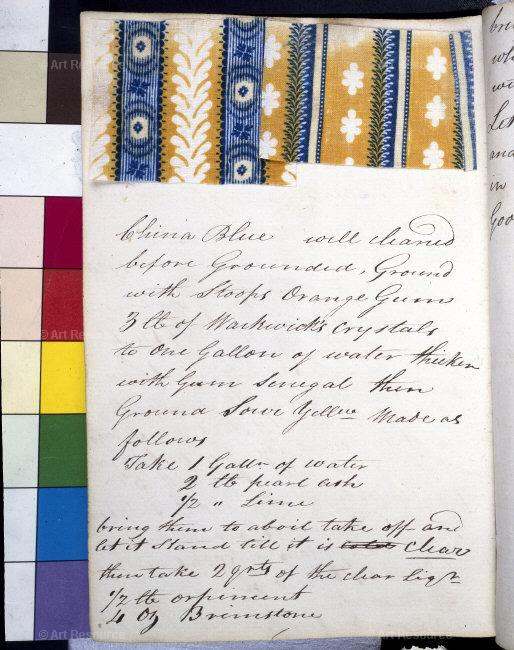 China Blue will cleaned
before Grounded, Ground
with Stoops Orange Gum
3 lb of Warkwick's Crystals
to One Gallon of water thicken
with Gum Senegal then
Ground Yellow Made as
follows
Take 1 Galln of water
2 lb pearl ash
1/2 " Lime
bring them to aboil take off and
let it Stand till it is clear
then take 2 qrts of the clear Liqr
1/2 lb orpiment
4 Oz Brimstone
© Art Resource
© Art Resource
© Art Resource
© Art Resource
© Art Resource
© Art Resource